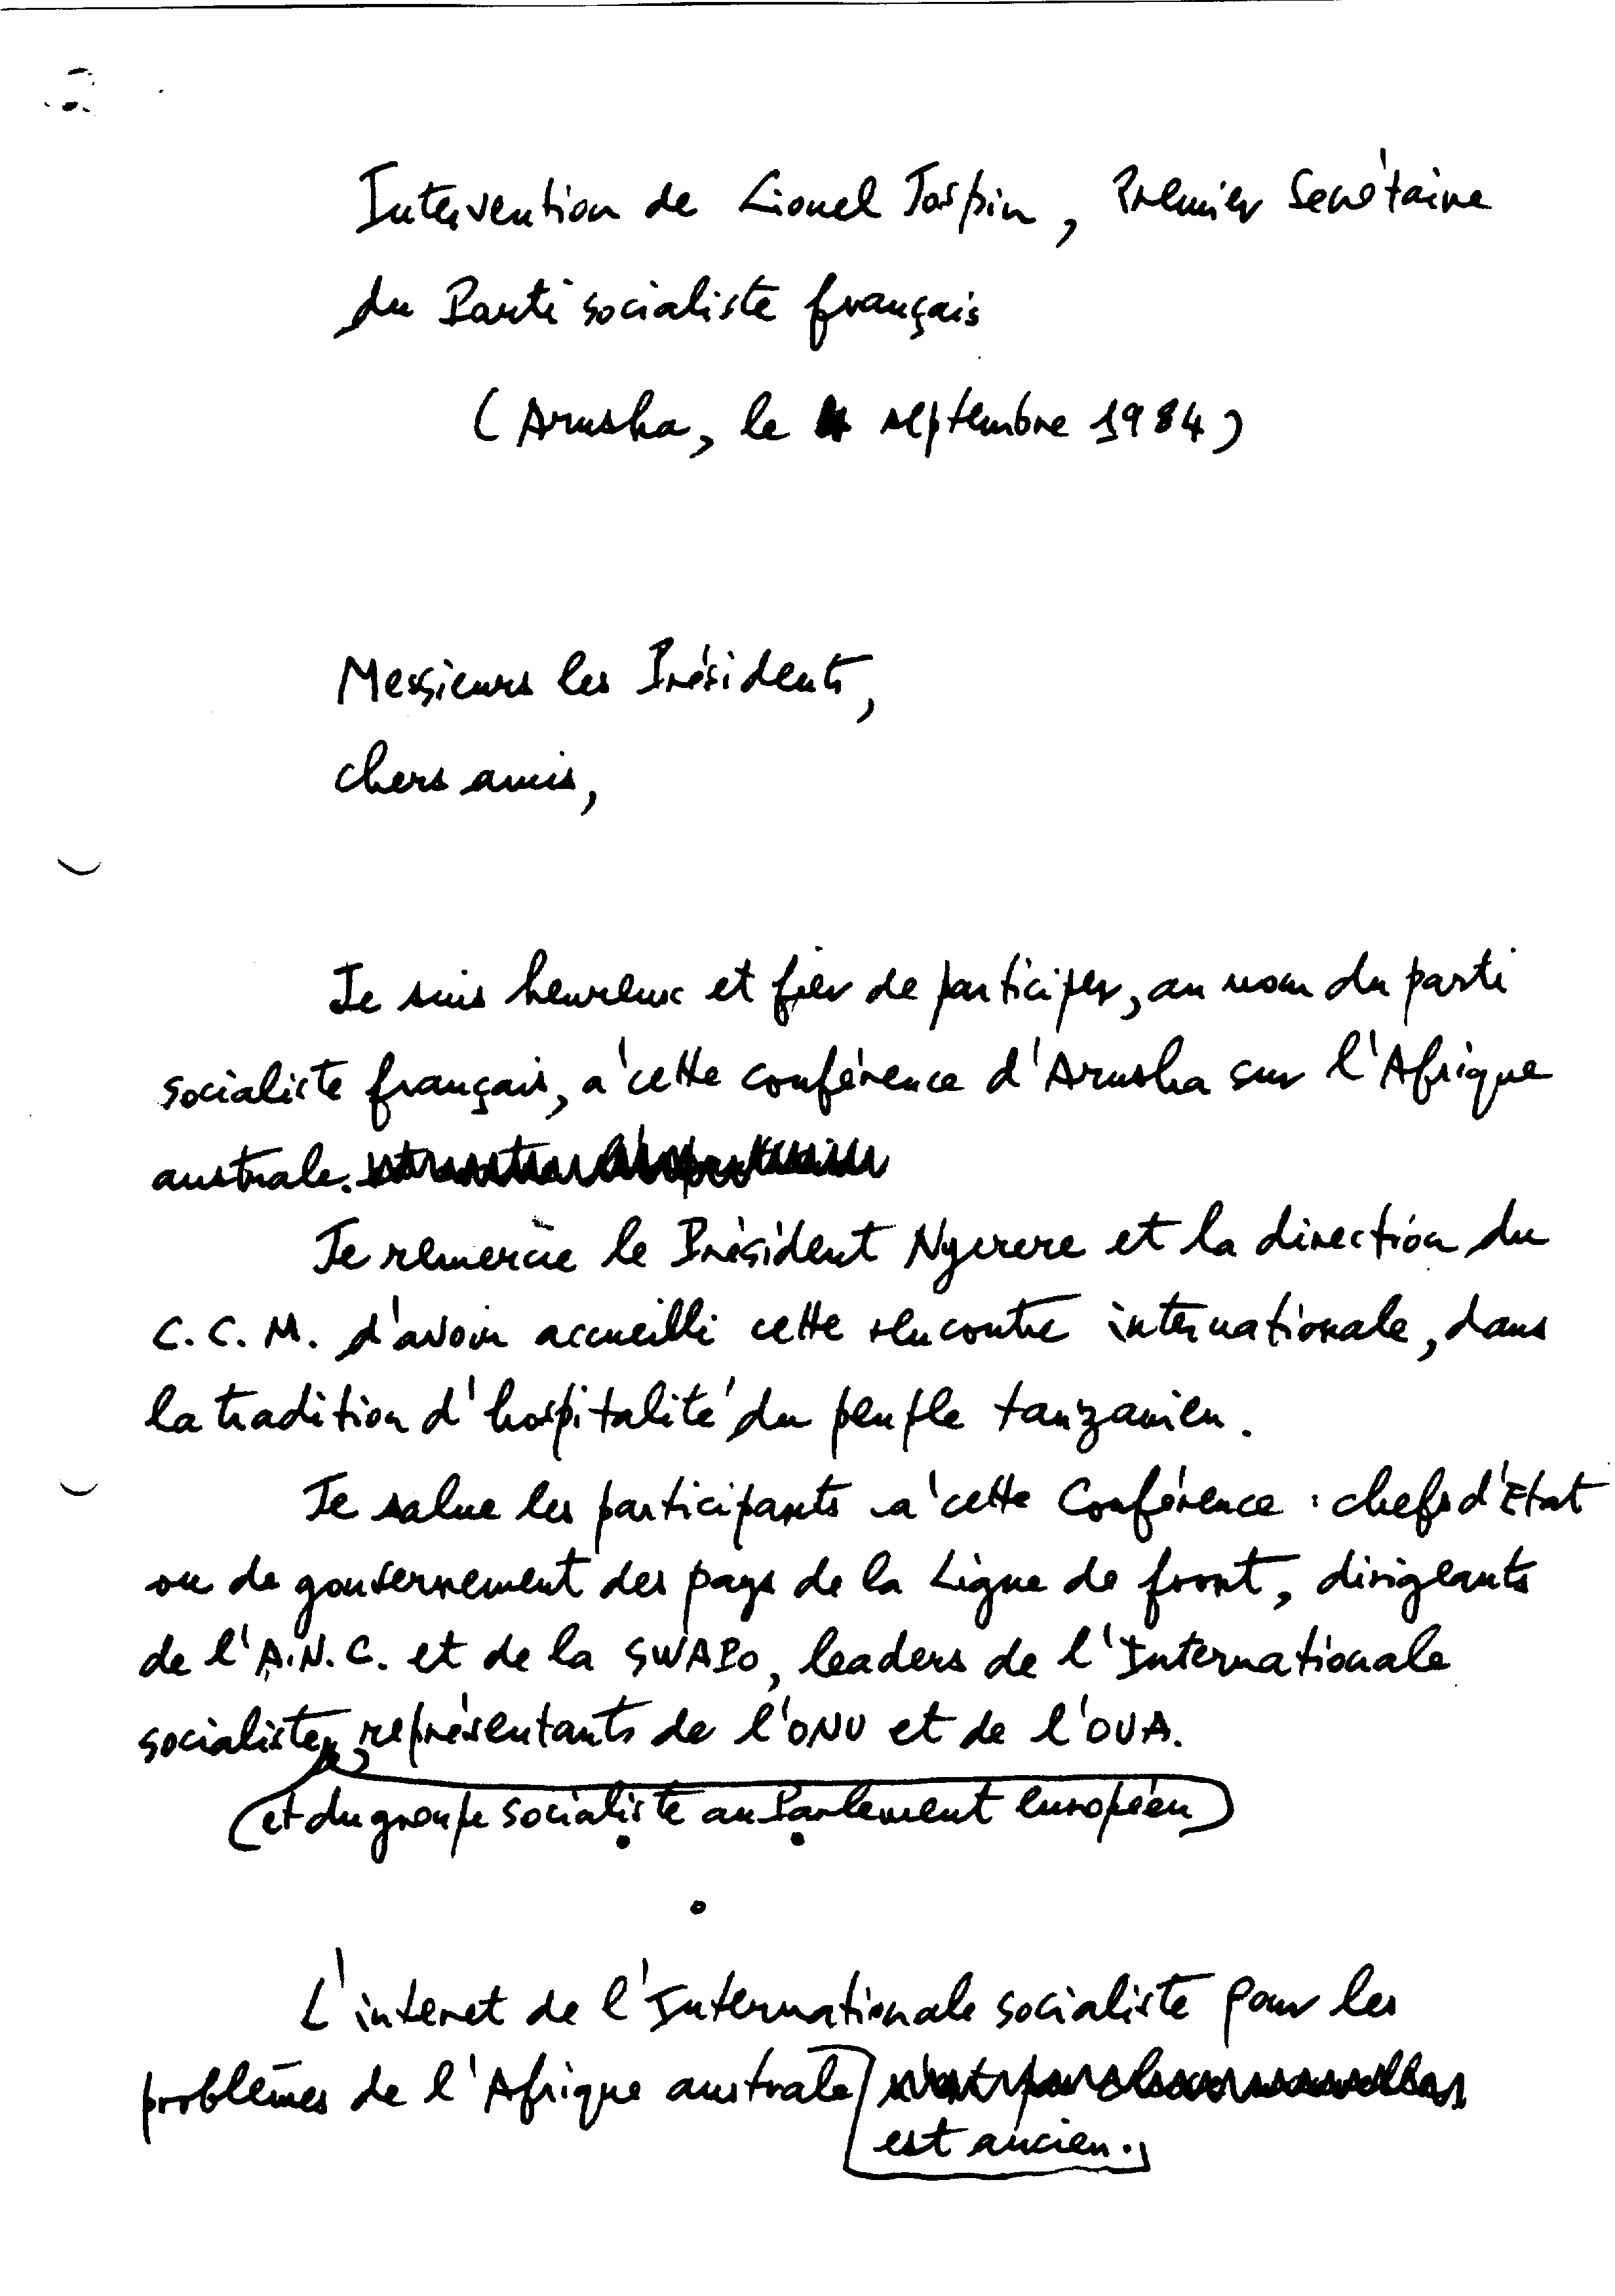 Intervention de Lionel Jospin, Premier Secrétaire
du Parti socialiste français
(Arusha, le 4 septembre 1984)
Messieurs les Présidents,
chers amis,
Je suis heureux et fier de participer, au nom du parti
socialiste français, à cette conférence d'Arusha sur l'Afrique
australe.
Je remercie le Président Nyerere et la direction du
C.C.M. d'avoir accueilli cette rencontre internationale, dans
la tradition d'hospitalité du peuple tanzanien.
Je salue les participants à cette Conférence : chefs d'Etat
ou de gouvernement des pays de la Ligne de front, dirigeants
de l'A.N.C. et de la SWAPO, leaders de l'Internationale
socialiste, représentants de l'ONU et de l'OUA.
et du groupe socialiste au Parlement européen
L'intéret de l'Internationale socialiste pour les
problèmes de l'Afrique australe
est ancien.